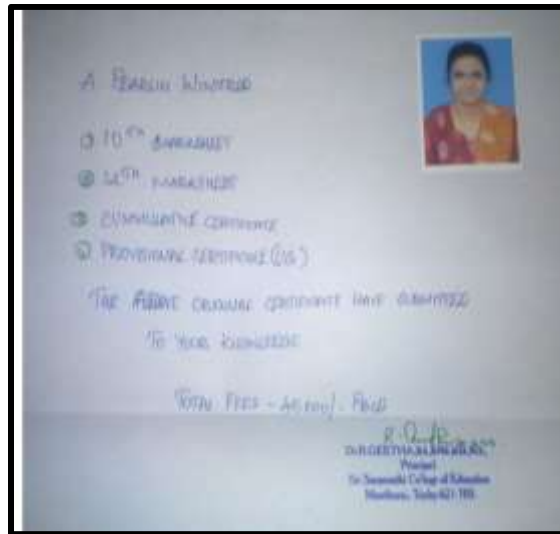 A PEARLIN WINFRED
① 10TH MARKSHEET
② 12TH MARKSHEET
③ CUMULATIVE CERTIFICATE
④ PROVISIONAL CERTIFICATE (UG)
THE ABOVE ORIGINAL CERTIFICATE HAVE SUBMITTED
TO YOUR KNOWLEDGE
TOTAL FEES - PAID
Principal
College of Education